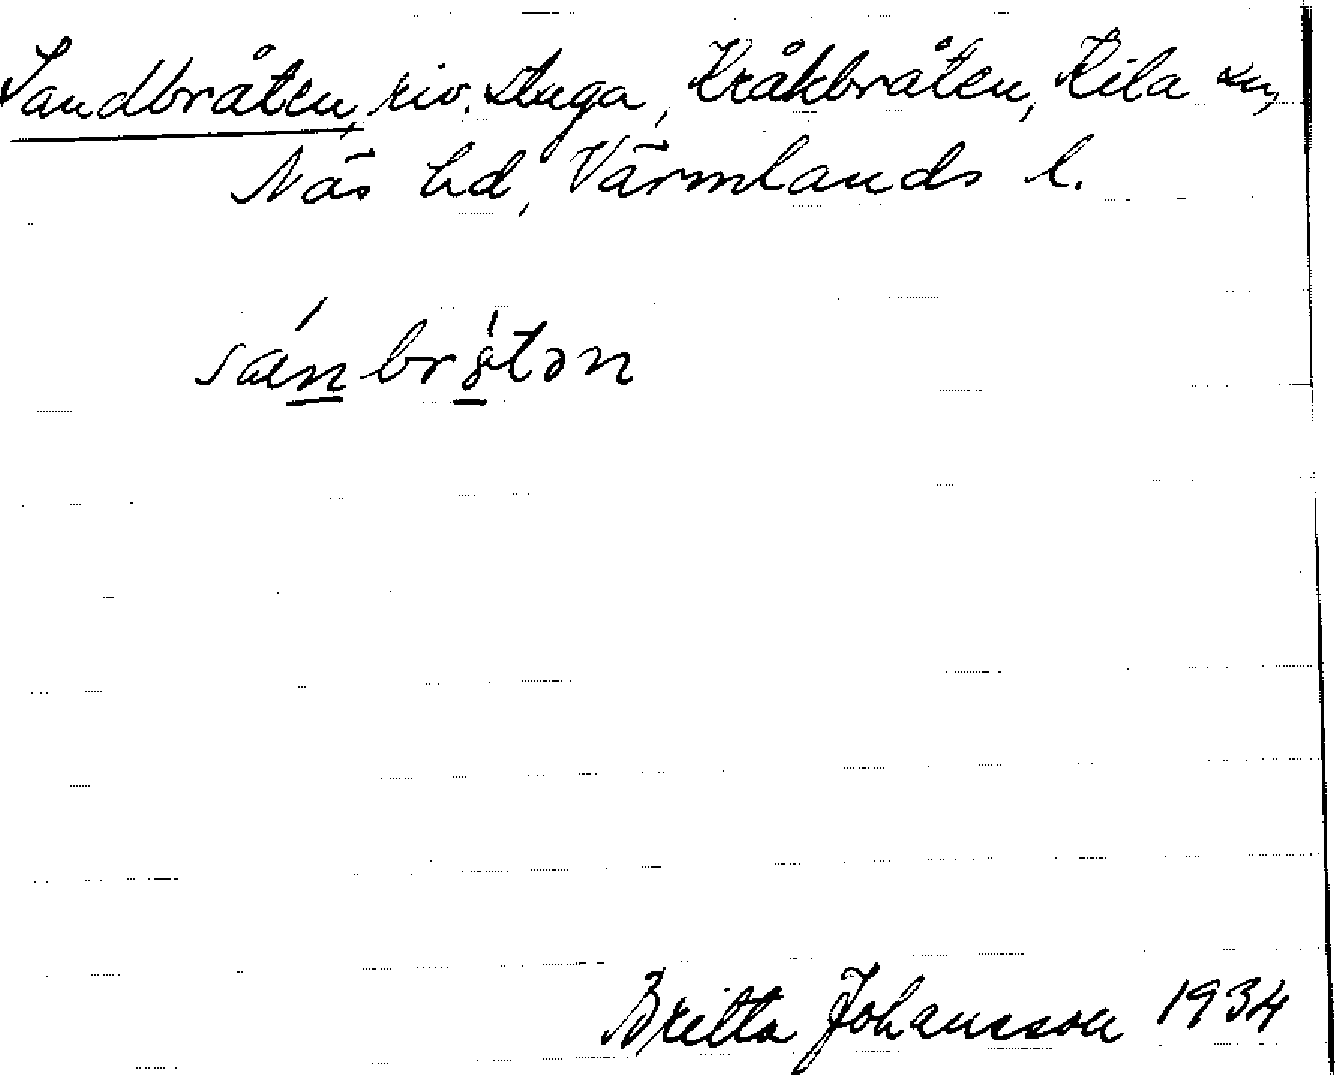 Sandbråten, riv. stuga, Kråkbråten, Kila sn,
Näs hd, Värmlands l.
Britta Johansson 1934